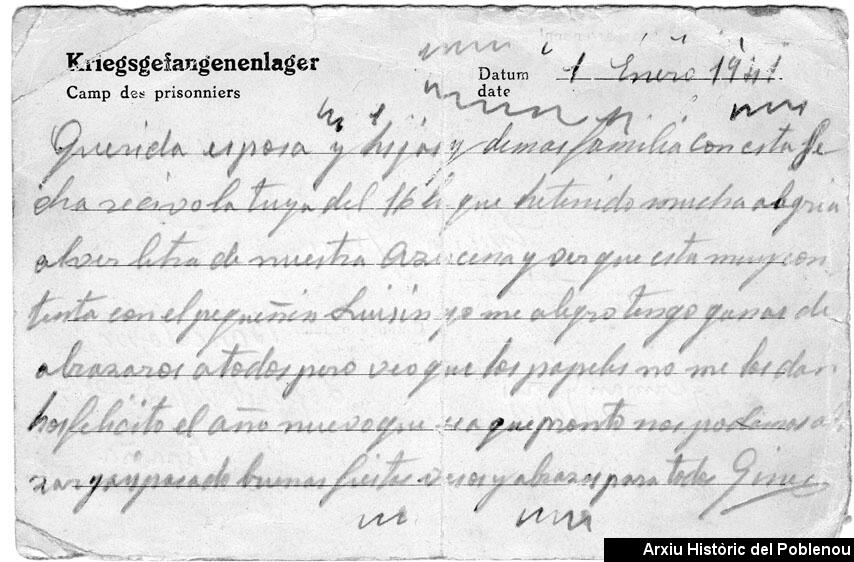 Kriegsgefangenenlager
Camp des prisonniers
Datum
date
1 Enero 1941
Querida esposa y hijos y demas familia con esta fe
cha recivo la tuya del 16 h que hetenido mucha alegria
al ver letra de nuestra Azucena y ver que esta muy con
tenta con el pequeñin Luisin yo me alegro tengo ganas de
abrazaros a todos pero veo que los papeles no me los dan
hos felicito el año nuevo que sea que pronto nos podamos a
zar y pasado buenas fiestas vesos y abrazos para todos Gines
Arxiu Històric del Poblenou